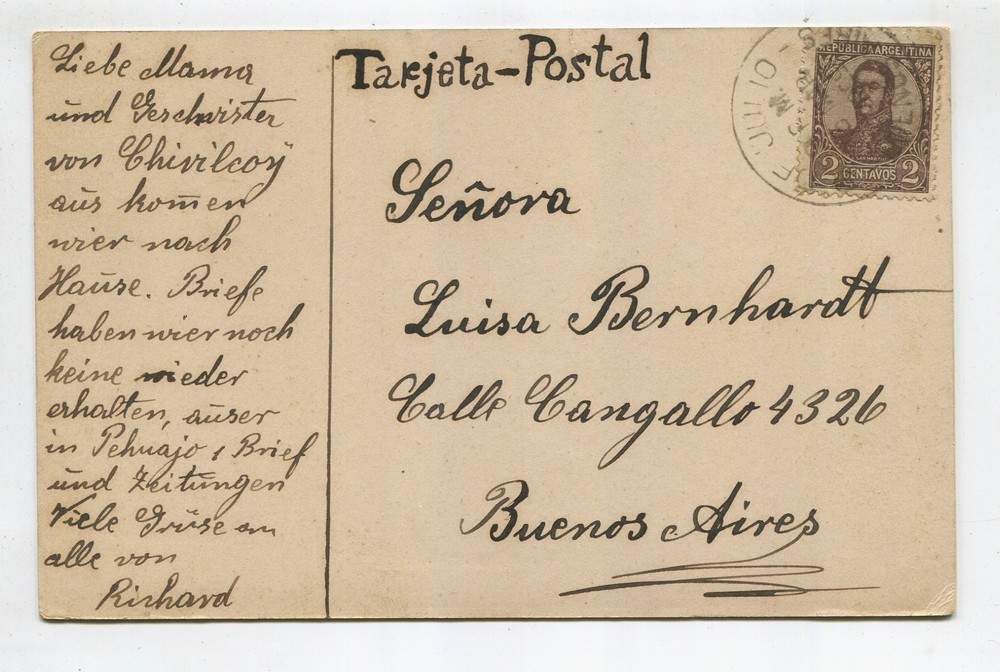 Liebe Mama
und Geschwister
von Chivilcoÿ
aus kom̄en
wier nach
Hause. Briefe
haben wier noch
keine wieder
erhalten, auser
in Pehuajo 1 Brief
und Zeitungen
Viele Grüse an
alle von
Richard
Tarjeta-Postal
Señora
Luisa Bernhardt
Calle Cangallo 4326
Buenos Aires
REPUBLICA ARGENTINA
SAN MARTIN
2 CENTAVOS 2
DE JULIO